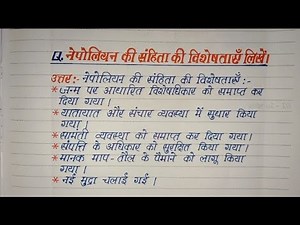 Q. नेपोलियन की संहिता की विशेषताएँ लिखें।
उत्तर:- नेपोलियन की संहिता की विशेषताएँ:-
* जन्म पर आधारित विशेषाधिकार को समाप्त कर
दिया गया।
* यातायात और संचार व्यवस्था में सुधार किया
गया।
* सामंती व्यवस्था को समाप्त कर दिया गया।
* संपत्ति के अधिकार को सुरक्षित किया गया।
* मानक माप-तौल के पैमाने को लागू किया
गया।
* नई मुद्रा चलाई गई।